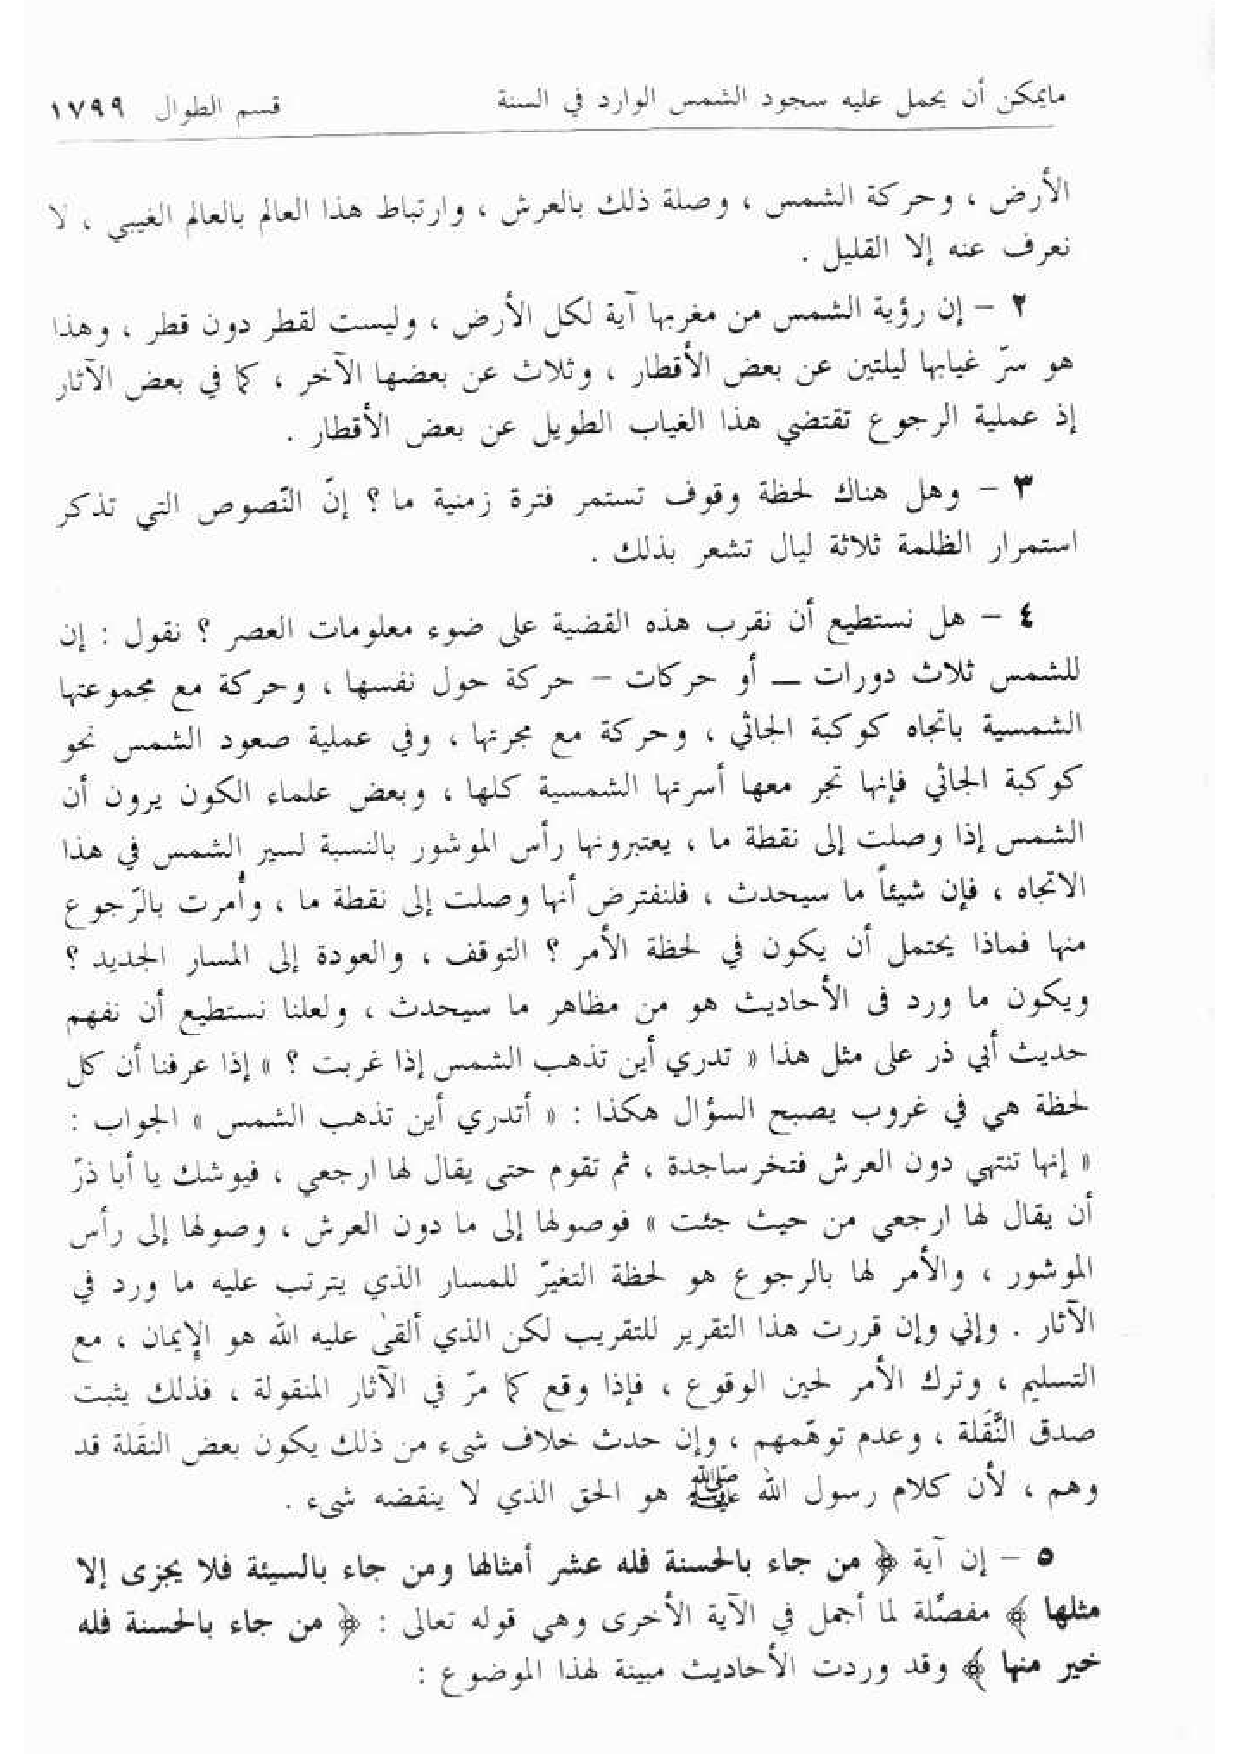 مايمكن أن يحمل عليه سجود الشمس الوارد في السنة قسم الطوال ١٧٩٩
الأرض ، وحركة الشمس ، وصلة ذلك بالعرش ، وارتباط هذا العالم بالعالم الغيبي ، لا
نعرف عنه إلا القليل .
٢ - إن رؤية الشمس من مغربها آية لكل الأرض ، وليست لقطر دون قطر ، وهذا
هو سرّ غيابها ليلتين عن بعض الأقطار ، وثلاث عن بعضها الآخر ، كما في بعض الآثار
إذ عملية الرجوع تقتضي هذا الغياب الطويل عن بعض الأقطار .
٣ - وهل هناك لحظة وقوف تستمر فترة زمنية ما ؟ إنّ النّصوص التي تذكر
استمرار الظلمة ثلاثة ليال تشعر بذلك .
٤ - هل نستطيع أن نقرب هذه القضية على ضوء معلومات العصر ؟ نقول : إن
للشمس ثلاث دورات ــ أو حركات - حركة حول نفسها ، وحركة مع مجموعتها
الشمسية باتجاه كوكبة الجاثي ، وحركة مع مجرتها ، وفي عملية صعود الشمس نحو
كوكبة الجاثي فإنها تجر معها أسرتها الشمسية كلها ، وبعض علماء الكون يرون أن
الشمس إذا وصلت إلى نقطة ما ، يعتبرونها رأس الموشور بالنسبة لسير الشمس في هذا
الاتجاه ، فإن شيئاً ما سيحدث ، فلنفترض أنها وصلت إلى نقطة ما ، وأُمرت بالرّجوع
منها فماذا يحتمل أن يكون في لحظة الأمر ؟ التوقف ، والعودة إلى المسار الجديد ؟
ويكون ما ورد فى الأحاديث هو من مظاهر ما سيحدث ، ولعلنا نستطيع أن نفهم
حديث أبي ذر على مثل هذا « تدري أين تذهب الشمس إذا غربت ؟ » إذا عرفنا أن كل
لحظة هي في غروب يصبح السؤال هكذا : « أتدري أين تذهب الشمس » الجواب :
« إنها تنتهي دون العرش فتخر ساجدة ، ثم تقوم حتى يقال لها ارجعي ، فيوشك يا أبا ذرّ
أن يقال لها ارجعي من حيث جئت » فوصولها إلى ما دون العرش ، وصولها إلى رأس
الموشور ، والأمر لها بالرجوع هو لحظة التغيّر للمسار الذي يترتب عليه ما ورد في
الآثار . وإني وإن قررت هذا التقرير للتقريب لكن الذي ألقىٰ عليه الله هو الإيمان ، مع
التسليم ، وترك الأمر لحين الوقوع ، فإذا وقع كما مرّ في الآثار المنقولة ، فذلك يثبت
صدق النَّقَلة ، وعدم توهّمهم ، وإن حدث خلاف شيء من ذلك يكون بعض النقَلة قد
وهم ، لأن كلام رسول الله ﷺ هو الحق الذي لا ينقضه شيء .
٥ - إن آية ﴿ من جاء بالحسنة فله عشر أمثالها ومن جاء بالسيئة فلا يجزى إلا
مثلها ﴾ مفصّلة لما أجمل في الآية الأخرى وهي قوله تعالى : ﴿ من جاء بالحسنة فله
خير منها ﴾ وقد وردت الأحاديث مبينة لهذا الموضوع :